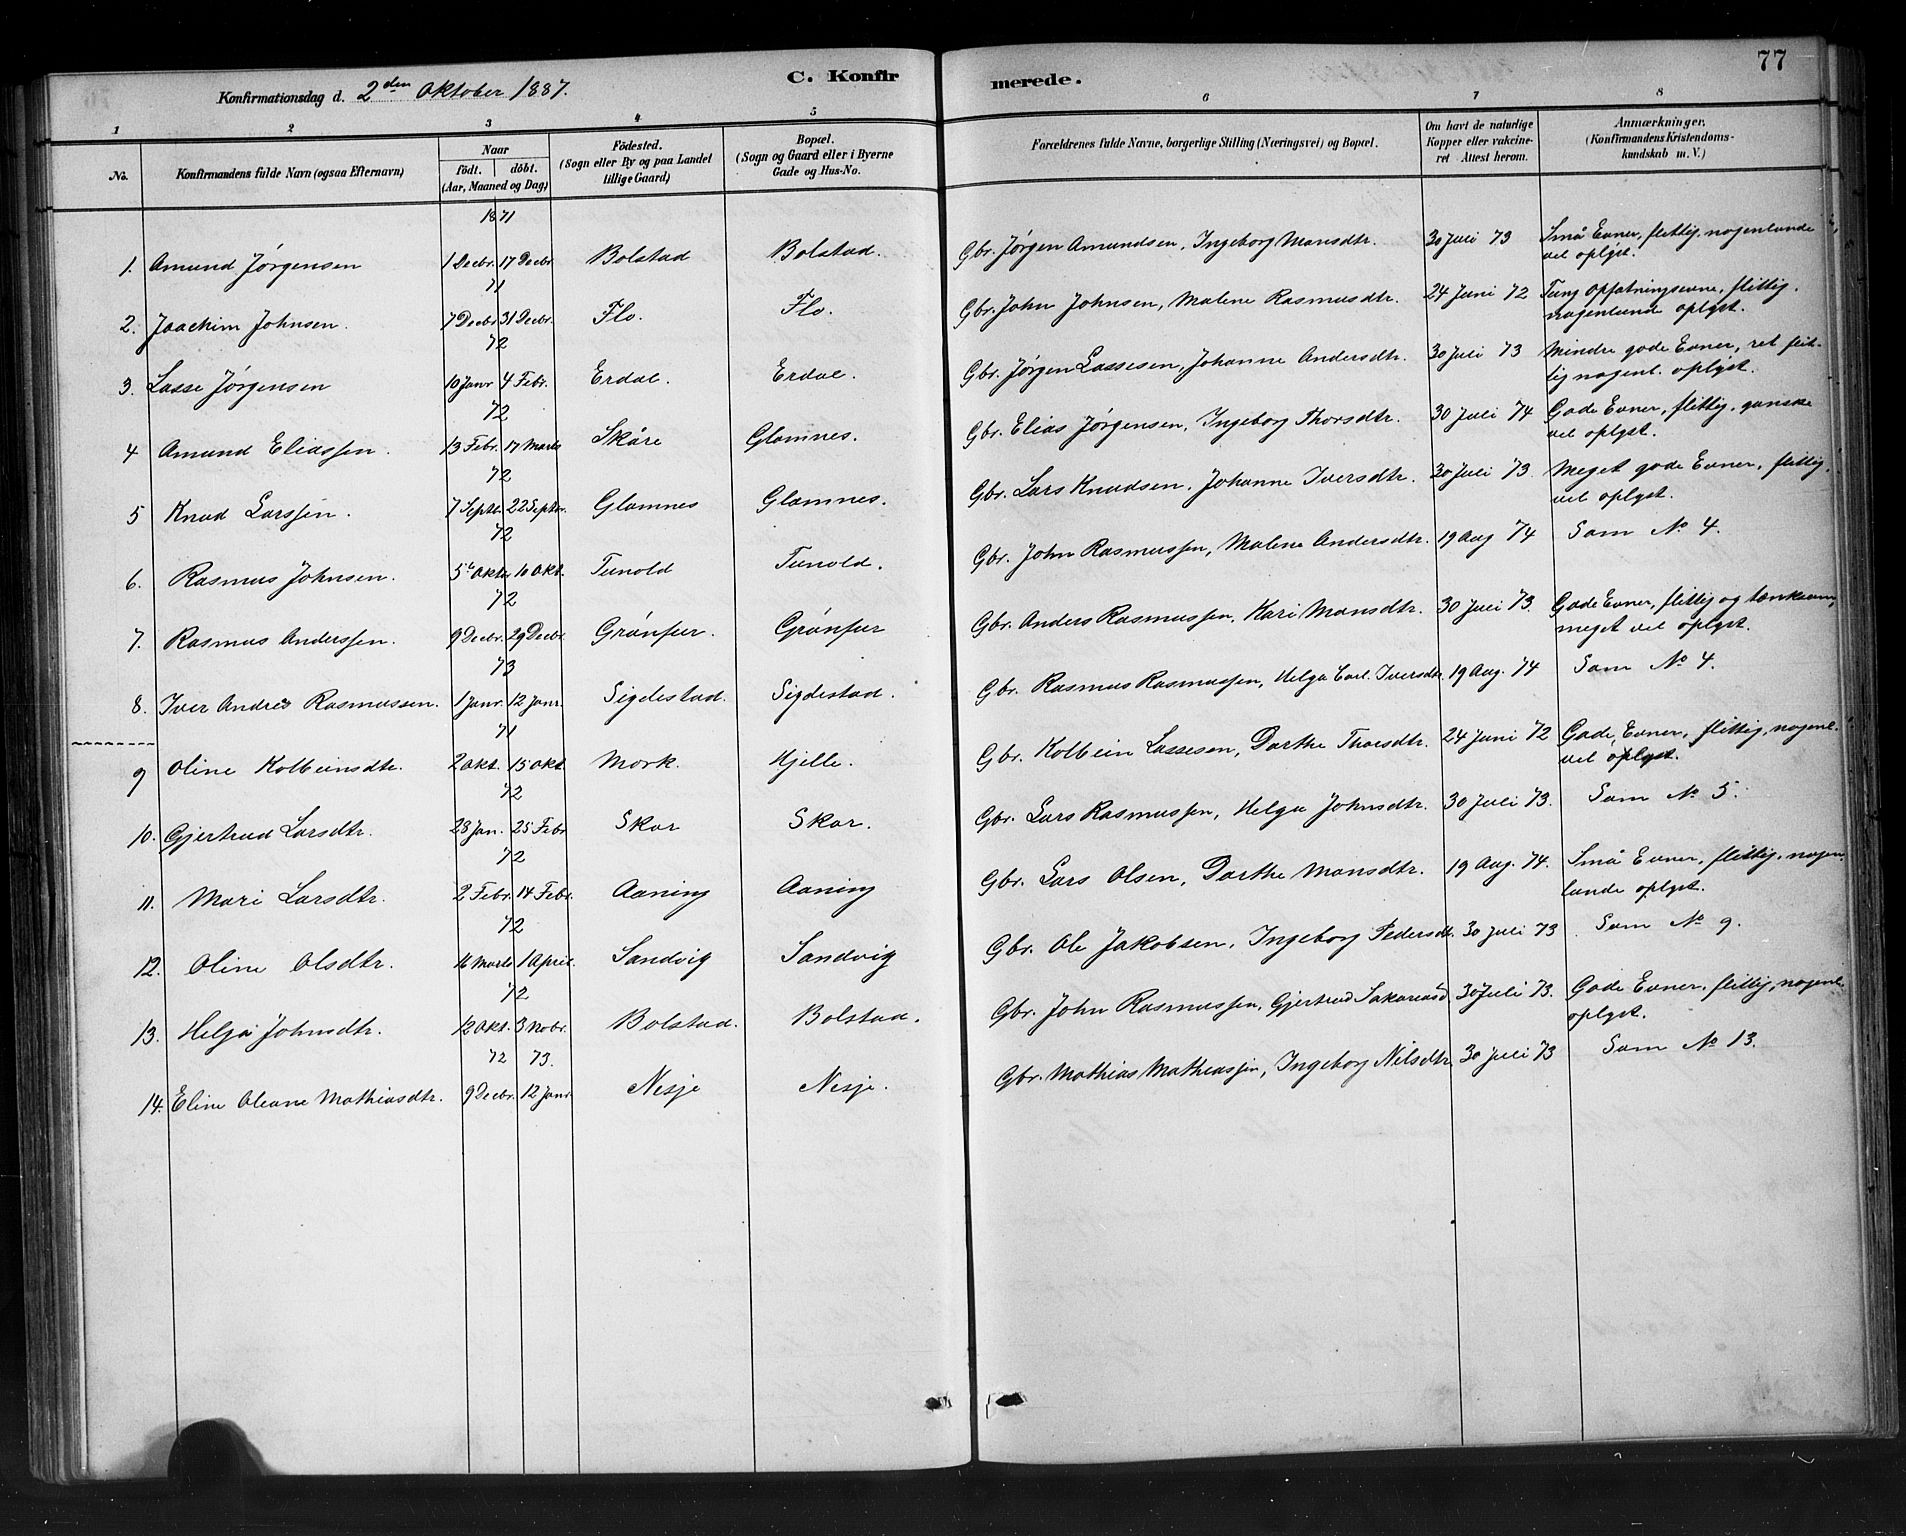 77
C. Konfirmerede.
Konfirmationsdag d. 2den Oktober 1887.
1 2 3 4 5 6 7 8
No. Konfirmandens fulde Navn (ogsaa Efternavn) Naar födt. döbt. (Aar, Maaned og Dag) Födested. (Sogn eller By og paa Landet tillige Gaard) Bopæl. (Sogn og Gaard eller i Byerne Gade og Hus-No. Forældrenes fulde Navne, borgerlige Stilling (Næringsvei) og Bopæl. Om havt de naturlige Kopper eller vakcineret Attest herom. Anmærkninger. (Konfirmandens Kristendomskundskab m. V.)
1871
1. Amund Jørgensen 1 Decbr. 17 Decbr. Bolstad Bolstad. Gbr. Jørgen Amundsen, Ingeborg Mansdtr. 30 Juli 73 Små Evner, flittig, nogenlunde
vel oplyst.
71
2. Joachim Johnsen. 7 Decbr. 31 Decbr. Flo. Flo. Gbr. John Johnsen, Malene Rasmusdtr. 24 Juni 72 Tung Opfatningsevne, flittig.
nogenlunde oplyst.
72
3. Lasse Jørgensen 10 Janr 4 Febr. Erdal. Erdal. Gbr. Jørgen Lassesen, Johanne Andersdtr. 30 Juli 73 Mindre gode Evner, ret flit-
tig nogenl. oplyst.
72
4 Amund Eliassen. 13 Febr. 17 Marts Skåre Glomnes. Gbr. Elias Jørgensen, Ingeborg Thorsdtr. 30 Juli 74 Gode Evner, flittig, ganske
vel oplyst.
72
5 Knud Larssen. 7 Septbr. 22 Septbr. Glomnes Glomnes. Gbr. Lars Knudsen, Johanne Iversdtr. 30 Juli 73. Meget gode Evner, flittig,
vel oplyst.
72
6. Rasmus Johnsen. 5 Oktbr 10 Okt. Tunold Tunold. Gbr. John Rasmussen, Malene Andersdtr. 19 Aug 74 Som No 4.
72
7. Rasmus Anderssen. 9 Decbr. 29 Decbr. Grønfur. Grønfur Gbr. Anders Rasmussen, Kari Mansdtr. 30 Juli 73. Gode Evner, flittig og tænksom,
meget vel oplyst.
73
8. Iver Andres Rasmussen. 1 Janr. 12 Janr. Sigdestad. Sigdestad. Gbr. Rasmus Rasmussen, Helga Iversdtr. 19 Aug. 74 Som No 4.
71
9 Oline Kolbeinsdtr. 2 Okt. 15 Okt. Mork. Hjelle. Gbr. Kolbein Lassesen, Dorthe Thorsdtr. 24 Juni 72 Gode Evner, flittig, nogenl.
vel oplyst.
72
10. Gjertrud Larsdtr. 28 Jan. 25 Febr Skor Skor. Gbr. Lars Rasmussen, Helga Johnsdtr. 30 Juli 73. Som No 5.
72
11. Mari Larsdtr. 2 Febr. 14 Febr. Aaning Aaning Gbr. Lars Olsen, Dorthe Mansdtr. 19 Aug. 74. Små Evner, flittig, nogen-
lunde oplyst.
72
12. Oline Olsdtr. 16 Marts 1 April Sandvig Sandvig Gbr. Ole Jakobsen, Ingeborg Pedersdt. 30 Juli 73 Som No 9.
72
13. Helga Johnsdtr. 12 Okt. 3 Nobr. Bolstad. Bolstad. Gbr. John Rasmussen, Gjertrud Sakariasd. 30 Juli 73. Gode Evner, flittig, nogenl.
oplyst.
72 73.
14. Eline Oleane Mathiasdtr. 9 Decbr. 12 Janr. Nesje Nesje. Gbr. Mathias Mathiassen, Ingeborg Nilsdtr. 30 Juli 73 Som No 13.